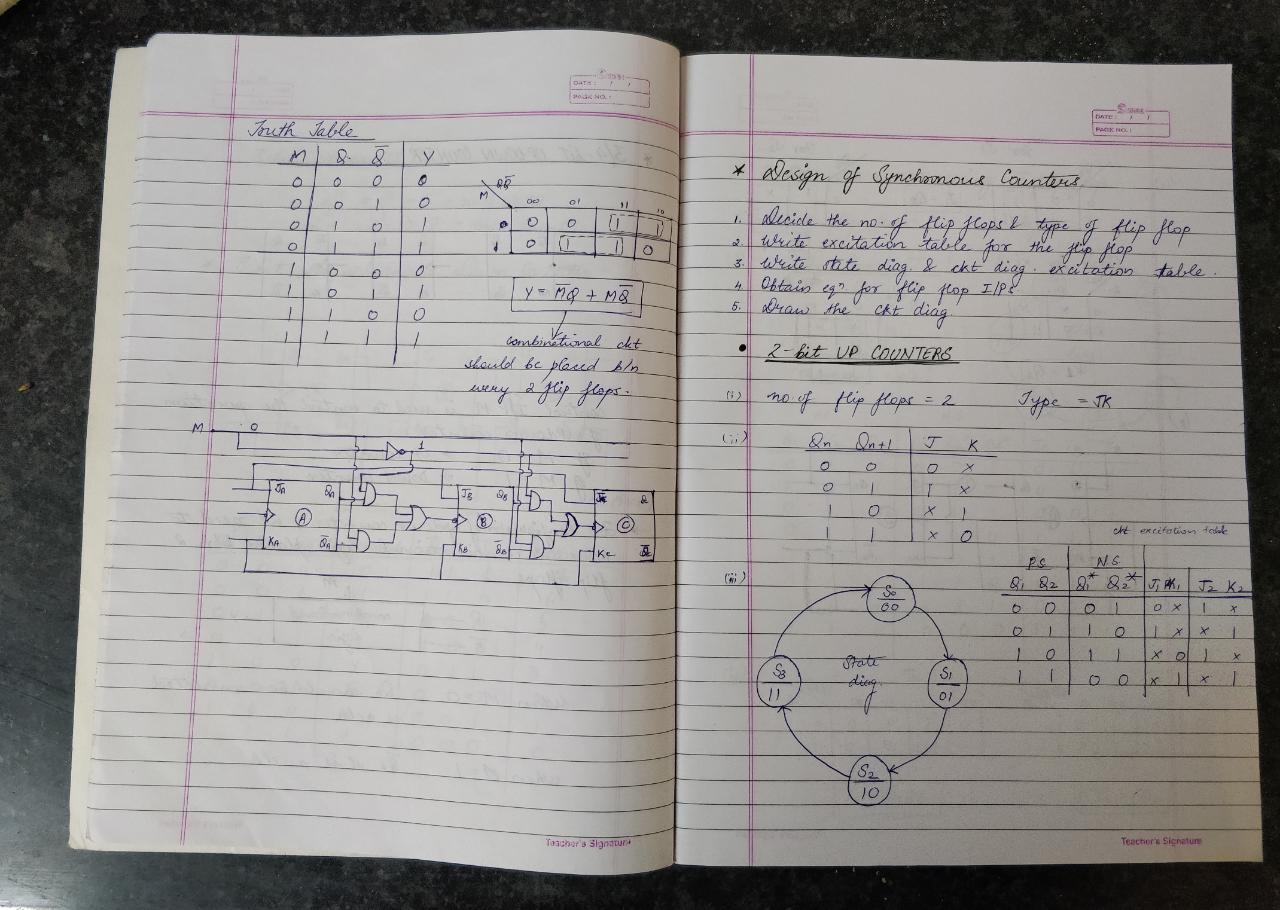 DATE: / /
PAGE NO.:
Truth Table
M Q Q̅ Y
0 0 0 0
0 0 1 0
0 1 0 1
0 1 1 1
1 0 0 0
1 0 1 1
1 1 0 0
1 1 1 1
QQ̅
M
00 01 11 10
0 0 0 1 1
1 0 1 1 0
Y = M̅Q + MQ̅
combinetional ckt
should be placed b/n
every 2 flip flops.
M 0
1
JA QA JB QB JC Q
A B C
KA Q̅A KB Q̅B KC Q̅C
Teacher's Signature
DATE: / /
PAGE NO.:
* Design of Synchronous Counters
1. Decide the no. of flip flops & type of flip flop
2. Write excitation table for the flip flop
3. Write state diag. & ckt diag. excitation table.
4. Obtain eqn for flip flop I/Ps
5. Draw the ckt diag.
• 2-bit UP COUNTERS
(i) no. of flip flops = 2 Type = JK
(ii) Qn Qn+1 J K
0 0 0 x
0 1 1 x
1 0 x 1
1 1 x 0
ckt excitation table
P.S. N.S.
Q1 Q2 Q1* Q2* J1 K1 J2 K2
0 0 0 1 0 x 1 x
0 1 1 0 1 x x 1
1 0 1 1 x 0 1 x
1 1 0 0 x 1 x 1
(iii) S0
00
State
diag.
S3
11
S1
01
S2
10
Teacher's Signature